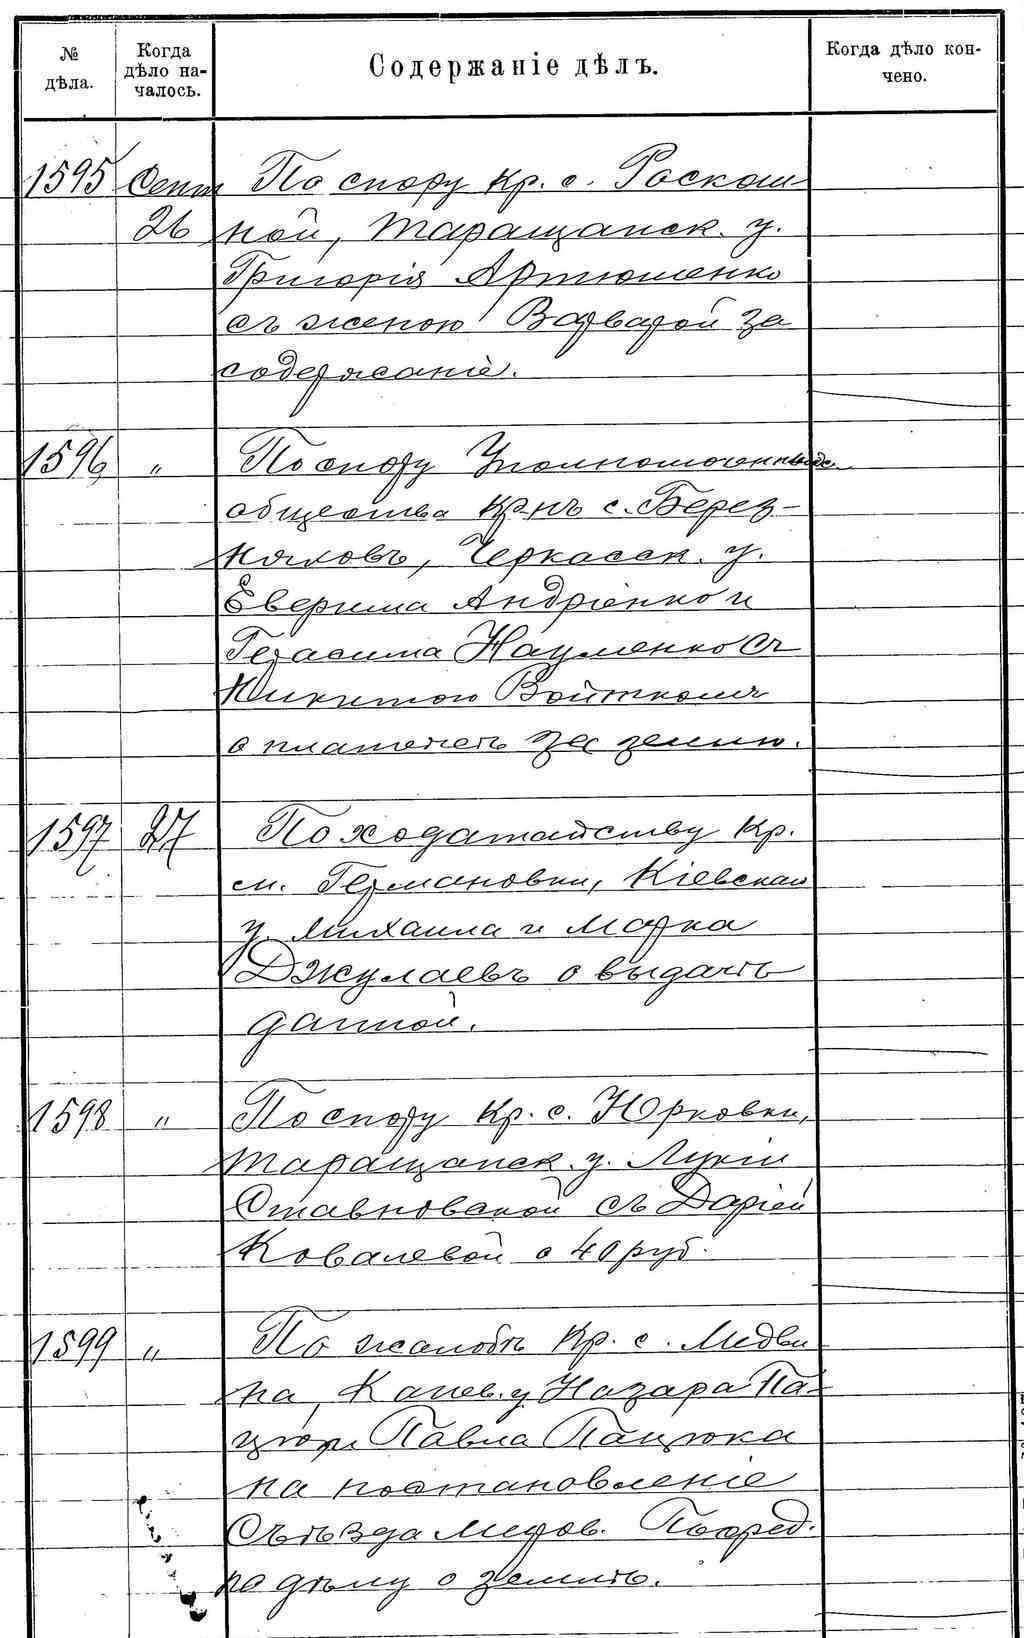 № дѣла.
Когда дѣло началось.
Содержаніе дѣлъ.
Когда дѣло кончено.
1595 Сент 26 По спору кр. с. Роскош-
ной, Таращанск. у.
Григорія Артюшенко
съ женою Варварой за
содержаніе.
1596 " По спору Уполномоченныхъ
общества кр-нъ с. Берез-
няковъ, Черкасск. у.
Еверима Андріенко и
Герасима Науменко съ
Никитою Войткомъ
о платежѣ за землю.
1597 27 По ходатайству кр.
м. Германовки, Кіевскаго
у. Михаила и Марка
Джулаевъ о выдачѣ
данной.
1598 " По спору кр. с. Юрковки,
Таращанск. у. Лукіи
Ставновской съ Даріей
Ковалевой о 40 руб.
1599 " По жалобѣ кр. с. Медви
на, Канев. у Назара Па-
цюк Павла Пацюка
на постановленіе
Съѣзда Миров. Посред.
по дѣлу о землѣ.